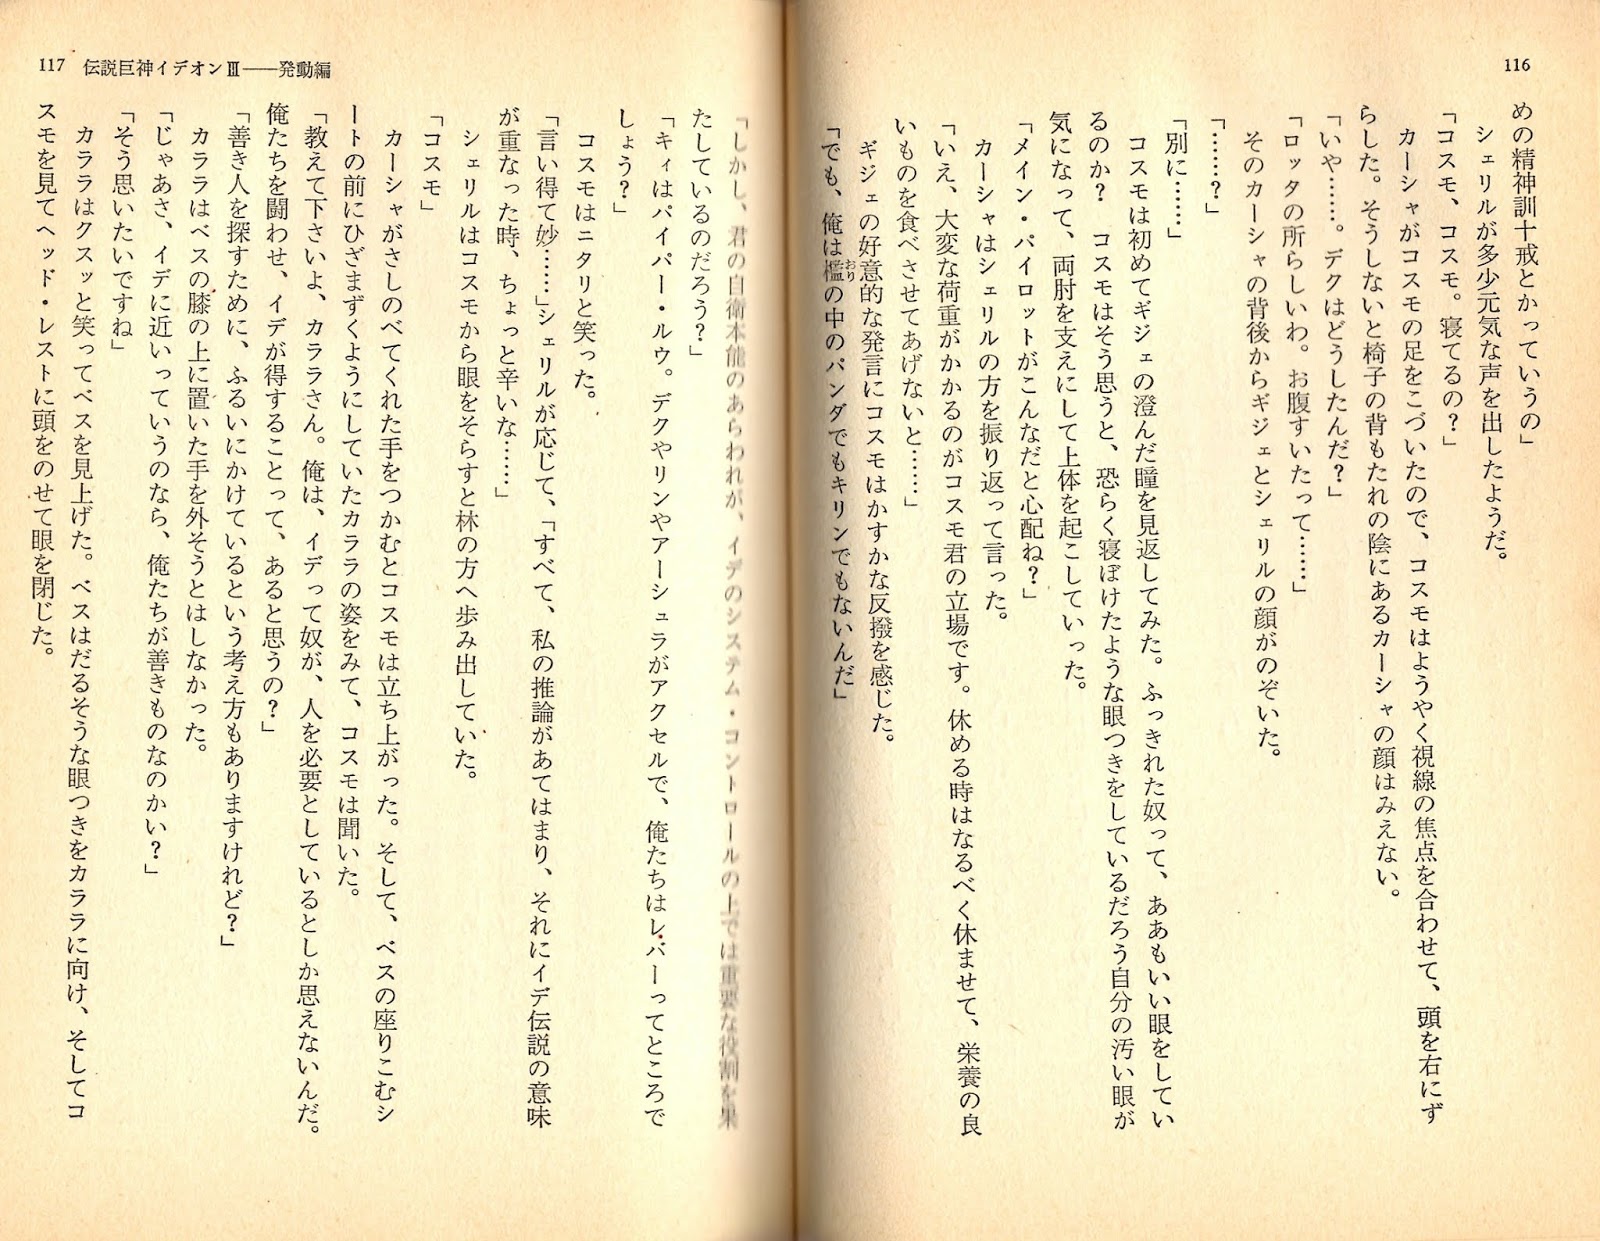 116
めの精神訓十戒とかっていうの」
シェリルが多少元気な声を出したようだ。
「コスモ、コスモ。寝てるの？」
カーシャがコスモの足をこづいたので、コスモはようやく視線の焦点を合わせて、頭を右にず
らした。そうしないと椅子の背もたれの陰にあるカーシャの顔はみえない。
「いや……。デクはどうしたんだ？」
「ロッタの所らしいわ。お腹すいたって……」
そのカーシャの背後からギジェとシェリルの顔がのぞいた。
「……？」
「別に……」
コスモは初めてギジェの澄んだ瞳を見返してみた。ふっきれた奴って、ああもいい眼をしてい
るのか？　コスモはそう思うと、恐らく寝ぼけたような眼つきをしているだろう自分の汚い眼が
気になって、両肘を支えにして上体を起こしていった。
「メイン・パイロットがこんなだと心配ね？」
カーシャはシェリルの方を振り返って言った。
「いえ、大変な荷重がかかるのがコスモ君の立場です。休める時はなるべく休ませて、栄養の良
いものを食べさせてあげないと……」
ギジェの好意的な発言にコスモはかすかな反撥を感じた。
「でも、俺は檻おりの中のパンダでもキリンでもないんだ」
117 伝説巨神イデオンⅢ——発動編
「しかし、君の自衛本能のあらわれが、イデのシステム・コントロールの上では重要な役割を果
たしているのだろう？」
「キィはパイパー・ルウ。デクやリンやアーシュラがアクセルで、俺たちはレバーってところで
しょう？」
コスモはニタリと笑った。
「言い得て妙……」シェリルが応じて、「すべて、私の推論があてはまり、それにイデ伝説の意味
が重なった時、ちょっと辛いな……」
シェリルはコスモから眼をそらすと林の方へ歩み出していた。
「コスモ」
カーシャがさしのべてくれた手をつかむとコスモは立ち上がった。そして、ベスの座りこむシ
ートの前にひざまずくようにしていたカララの姿をみて、コスモは聞いた。
「教えて下さいよ、カララさん。俺は、イデって奴が、人を必要としているとしか思えないんだ。
俺たちを闘わせ、イデが得することって、あると思うの？」
「善き人を探すために、ふるいにかけているという考え方もありますけれど？」
カララはベスの膝の上に置いた手を外そうとはしなかった。
「じゃあさ、イデに近いっていうのなら、俺たちが善きものなのかい？」
「そう思いたいですね」
カララはクスッと笑ってベスを見上げた。ベスはだるそうな眼つきをカララに向け、そしてコ
スモを見てヘッド・レストに頭をのせて眼を閉じた。